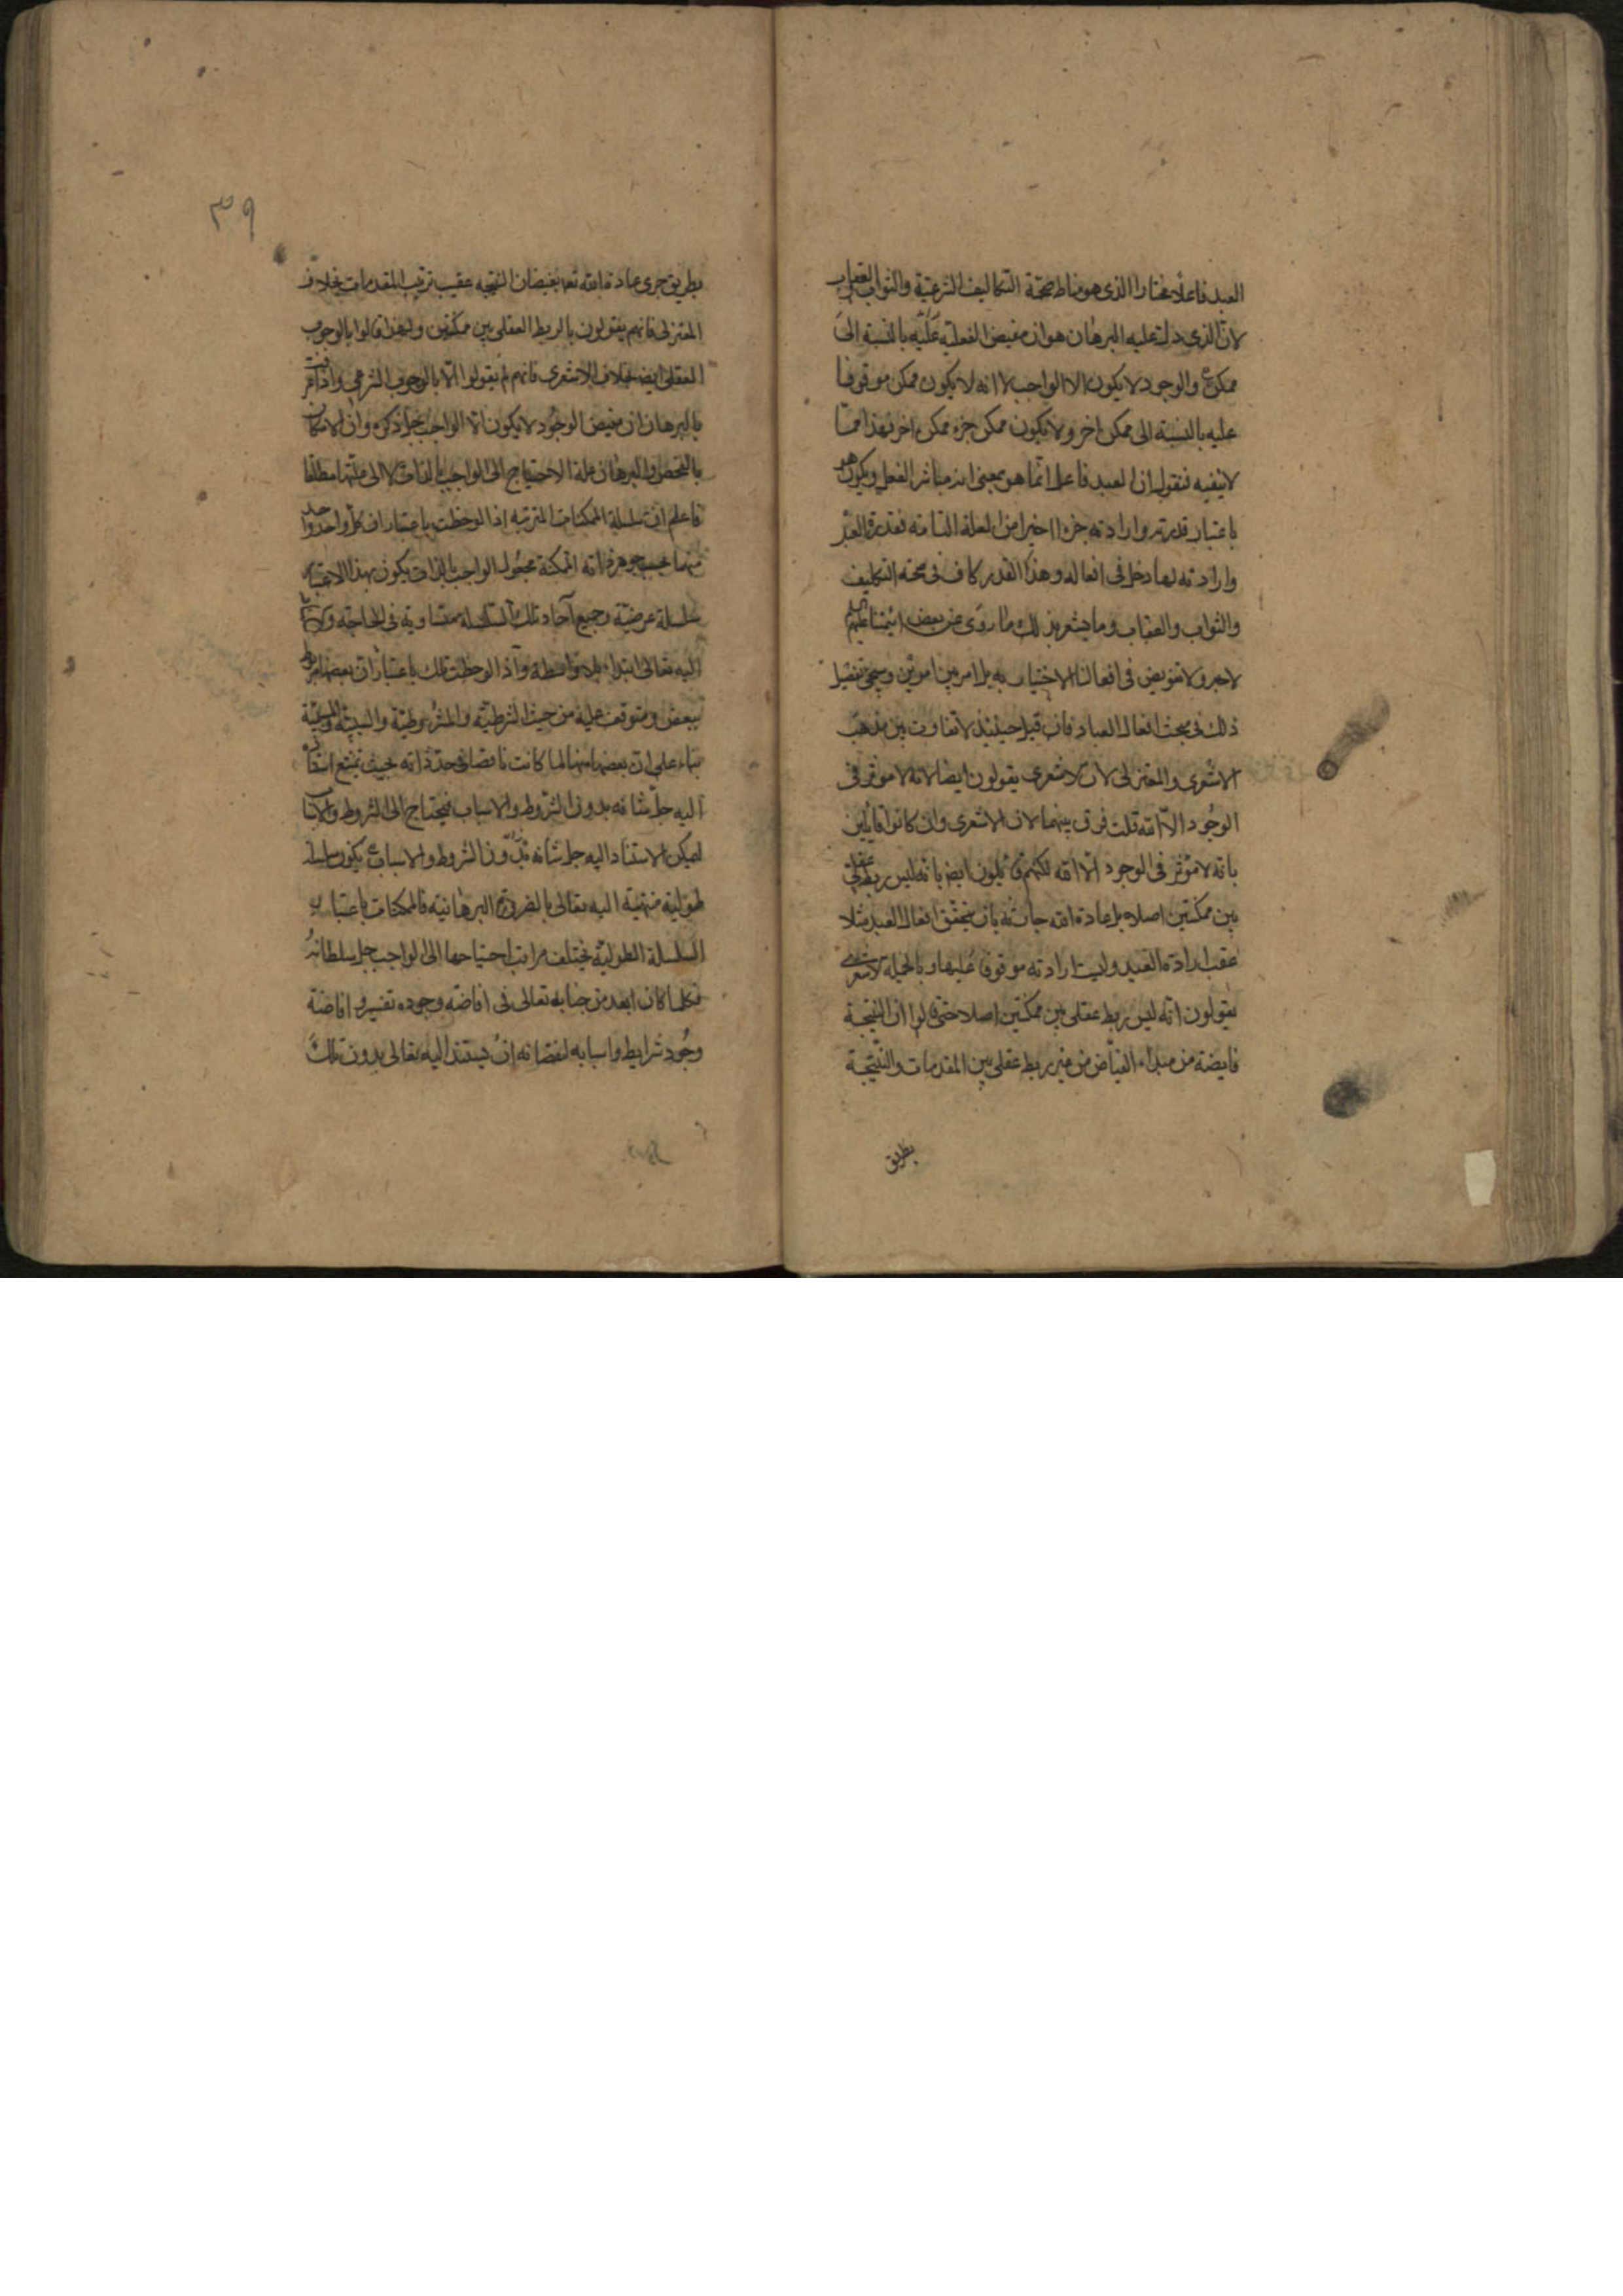 العبد فاعلا مختارا الذى هو مناط صحة التكاليف الشرعية والثواب والعقاب
لان الذى دل عليه البرهان هو ان مفيض الفعلية عليه بالنسبة الى
ممكن والوجود لا يكون الا الواجب لا انه لا يكون ممكن موقوفا
عليه بالنسبة الى ممكن اخر ولا يكون ممكن جزء ممكن اخر فهذا مما
لا ينفيه فنقول ان العبد فاعل انما هو بمعنى انه مباشر الفعل ويكون هو
باعتبار قدرته وارادته جزءا اخيرا من العلة التامة فقدرة العبد
وارادته لها دخل فى افعاله وهذا القدر كاف فى صحة التكليف
والثواب والعقاب وما يشعر بذلك ما روى عن بعض ائمتنا عليهم
لا جبر ولا تفويض فى افعالنا الاختيارية بل امر بين امرين وسيجئ تفصيل
ذلك فى بحث افعال العباد فان قيل حينئذ لا تفاوت بين مذهب
الاشعرى والمعتزلى لان الاشعرى يقولون ايضا لانه لا مؤثر فى
الوجود الا الله قلت فرق بينهما لان الاشعرى وان كانوا قائلين
بانه لا مؤثر فى الوجود الا الله لكنهم قائلون ايضا بانه ليس ربط عقلى
بين ممكنين اصلا بل عادة الله جارية بان يتحقق افعال العبد مثلا
عقيب ارادة العبد وليست ارادته موقوفا عليها وبالجملة الاشعرى
يقولون انه ليس ربط عقلى بين ممكنين اصلا حتى قالوا ان النتيجة
فايضة من مبداء الفياض من غير ربط عقلى بين المقدمات والنتيجة
بطريق
٣٩
بطريق جرى عادة الله تعه بفيضان النتيجه عقيب ترتيب المقدمات بخلاف
المعتزلى فانهم يقولون بالربط العقلى بين ممكنين ولهذا قالوا بالوجوب
العقلى ايضا بخلاف الاشعرى فانهم لم يقولوا الا بالوجوب الشرعى واذا
بالبرهان ان مفيض الوجود لا يكون الا الواجب جل ذكره وان الامكان
بالفحص والبرهان علة الاحتياج الى الواجب بالذات لا الى علتها مطلقا
فاعلم ان سلسلة الممكنات المترتبة اذا لوحظت باعتبار ان كل واحد واحد
منها بحسب جوهر ذاته الممكنة مجعول الواجب بالذات يكون بهذا الاعتبار
سلسلة عرضية وجميع آحاد تلك السلسلة متساوية فى الحاجة
اليه تعالى ابتداء بلا واسطة واذا لوحظت تلك باعتبار ان بعضها مربوط
ببعض ومتوقف عليه من حيث الشرطية والمشروطية والسببية والمسببية
بناء على ان بعضها منها لما كانت ناقصا فى حد ذاته بحيث يمتنع استناده
اليه جل شانه بدون الشروط والاسباب فيحتاج الى الشروط والاسباب
ليمكن الاستناد اليه جل شانه بدون الشروط والاسباب يكون سلسلة
طولية منتهية اليه تعالى بالضرورة البرهانية فالممكنات باعتبار
السلسلة الطولية يختلف مراتب احتياجها الى الواجب جل سلطانه
فكلما كان ابعد من جنابه تعالى فى افاضة وجوده نفسه و افاضة
وجود شرايط واسبابه لنقصانه ان يستند اليه تعالى بدون تلك